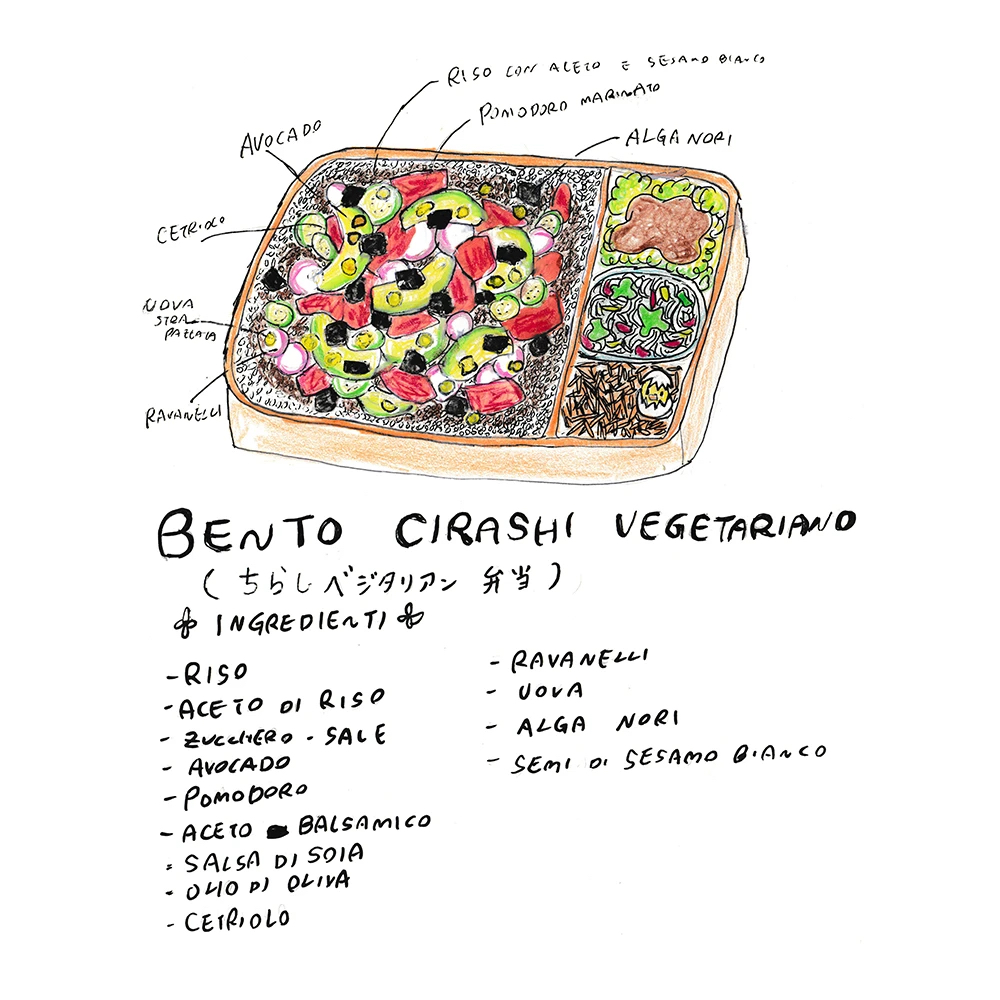 RISO CON ACETO E SESAMO BIANCO
POMODORO MARINATO
ALGA NORI
AVOCADO
CETRIOLO
UOVA
STRA
PAZZATA
RAVANELLI
BENTO CIRASHI VEGETARIANO
(ちらしベジタリアン 弁当)
INGREDIENTI
- RISO
- ACETO DI RISO
- ZUCCHERO - SALE
- AVOCADO
- POMODORO
- ACETO BALSAMICO
- SALSA DI SOIA
- OLIO DI OLIVA
- CETRIOLO
- RAVANELLI
- UOVA
- ALGA NORI
- SEMI DI SESAMO BIANCO